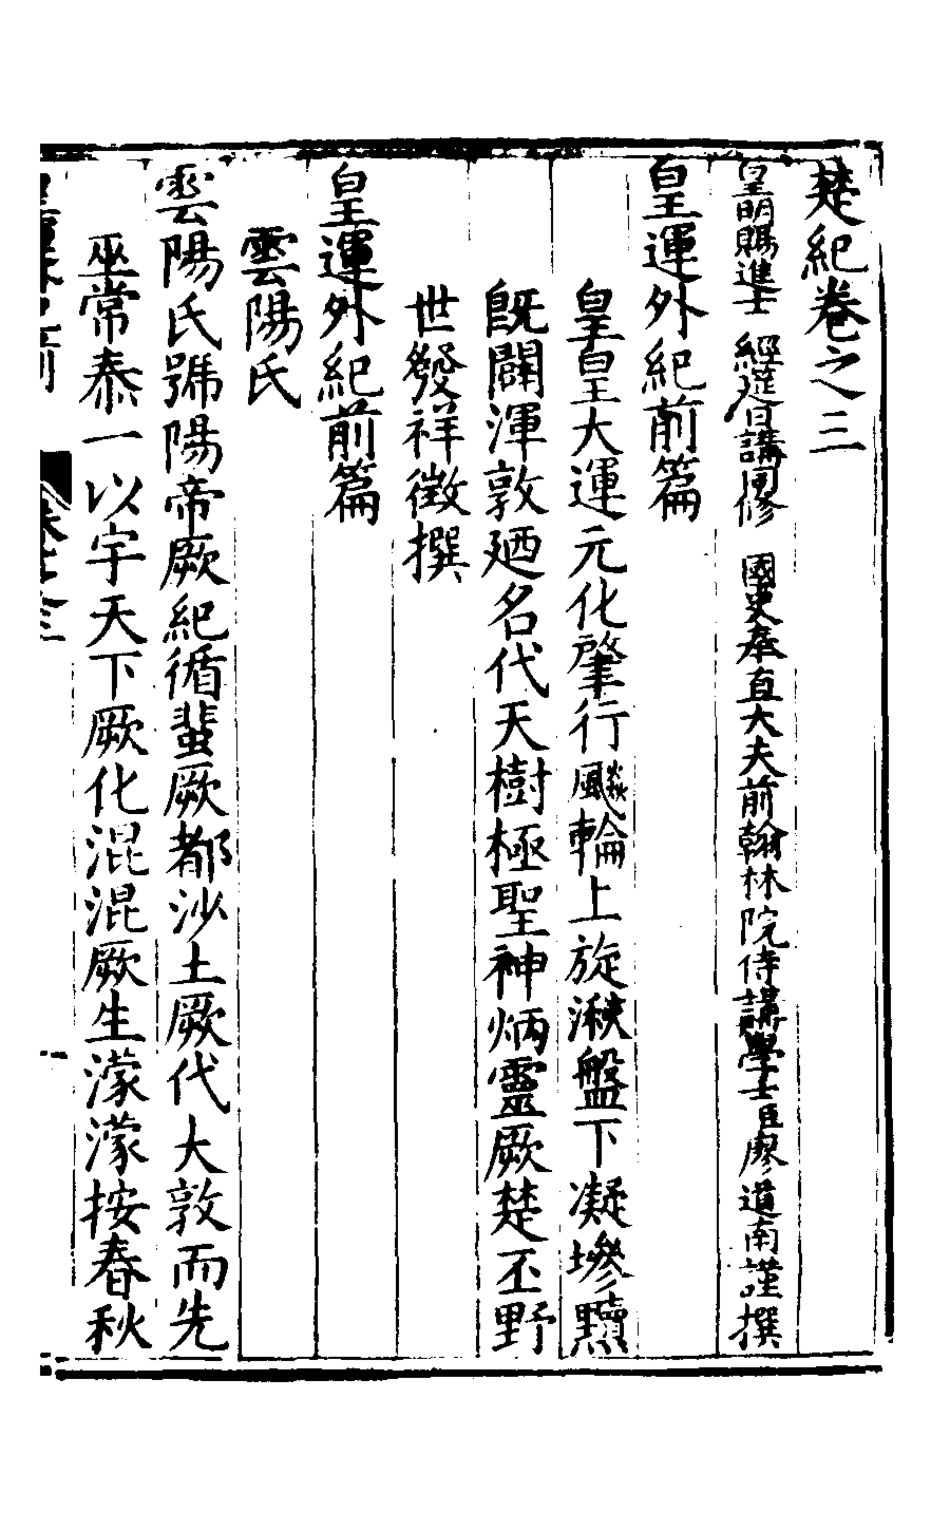 楚紀卷之三
皇明賜進士 經筵日講同修 國史奉直大夫前翰林院侍講學士臣廖道南謹撰
皇運外紀前篇
皇皇大運元化肇行飈輪上旋湫盤下凝墋黷
旣闢渾敦廼名代天樹極聖神炳靈厥楚丕野
世發祥徵撰
皇運外紀前篇
雲陽氏
雲陽氏號陽帝厥紀循蜚厥都沙土厥代大敦而先
巫常泰一以宇天下厥化混混厥生濛濛按春秋